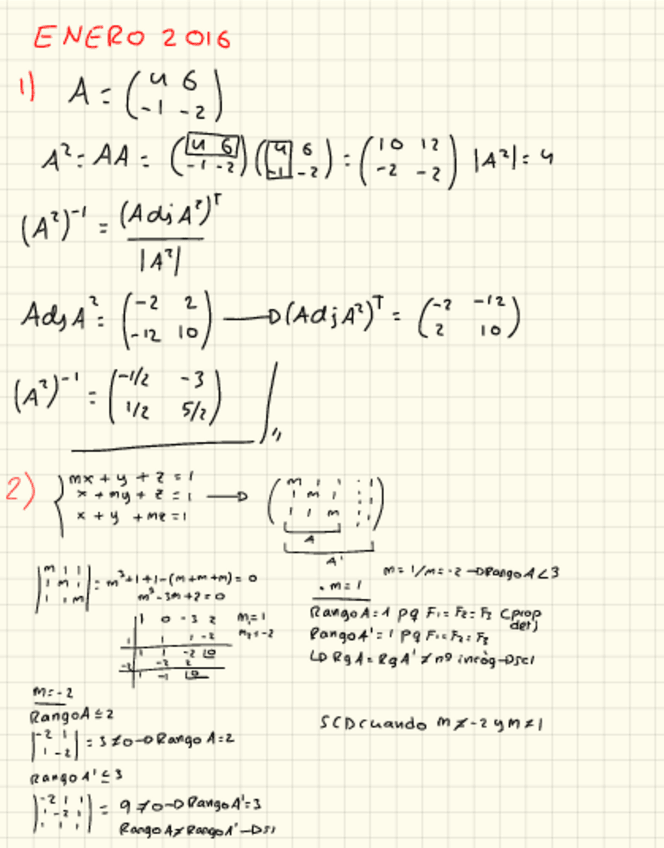 ENERO 2016
1) A = (4 6 / -1 -2)
A² = AA = (4 6 / -1 -2)(4 6 / -1 -2) = (10 12 / -2 -2) |A²| = 4
(A²)⁻¹ = (Adj A²)ᵀ / |A²|
Adj A² = (-2 2 / -12 10) → (Adj A²)ᵀ = (-2 -12 / 2 10)
(A²)⁻¹ = (-1/2 -3 / 1/2 5/2)
2) { mx + y + z = 1 / x + my + z = 1 / x + y + mz = 1 → (m 1 1 1 / 1 m 1 1 / 1 1 m 1)
A
A'
|m 1 1 / 1 m 1 / 1 1 m| = m³+1+1-(m+m+m) = 0
m³-3m+2=0
1 0 -3 2
1 1 1 -2
1 1 -2 0
-2 -2 2
1 -1 0
m₁=1
m₂=-2
m=1/m=-2 → Rango A<3
. m=1
Rango A=1 pq F₁=F₂=F₃ (prop det)
Rango A'=1 pq F₁=F₂=F₃
Rg A = Rg A' ≠ nº incóg → SCI
m=-2
Rango A≤2
|-2 1 / 1 -2| = 3≠0 → Rango A=2
Rango A'≤3
|-2 1 1 / 1 -2 1 / 1 1 1| = 9≠0 → Rango A'=3
Rango A≠Rango A' → SI
SCD cuando m≠-2 y m≠1